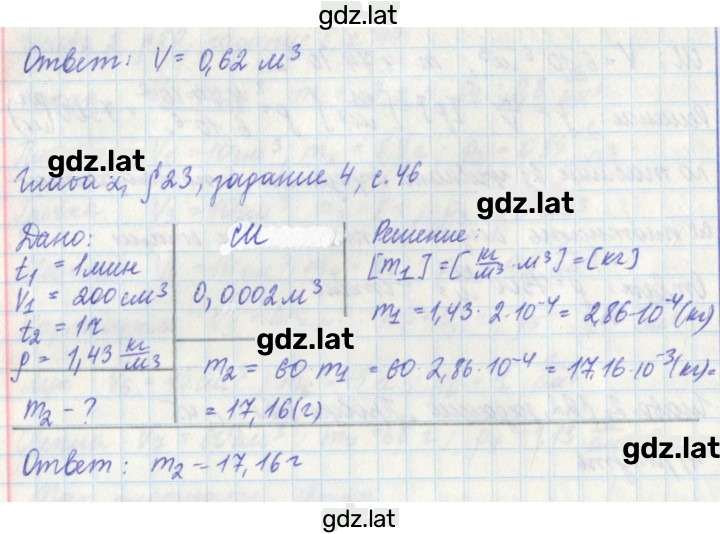 gdz.lat
Ответ: V = 0,62 м³
gdz.lat
Глава 2, §23, задание 4, с. 46
gdz.lat
Дано:
t₁ = 1 мин
V₁ = 200 см³
t₂ = 1ч
ρ = 1,43 кг/м³
m₂ - ?
СИ
0,0002 м³
gdz.lat
Решение:
[m₁] = [кг/м³ · м³] = [кг]
m₁ = 1,43 · 2 · 10⁻⁴ = 2,86 · 10⁻⁴ (кг)
m₂ = 60 · m₁ = 60 · 2,86 · 10⁻⁴ = 17,16 · 10⁻³ (кг) =
= 17,16 (г)
gdz.lat
Ответ: m₂ - 17,16 г
gdz.lat